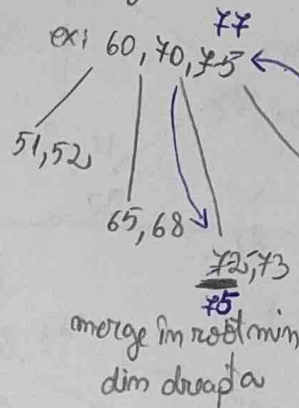 77
ex: 60, 70, 75
51, 52
65, 68
72, 73
75
merge în root min
din dreapta